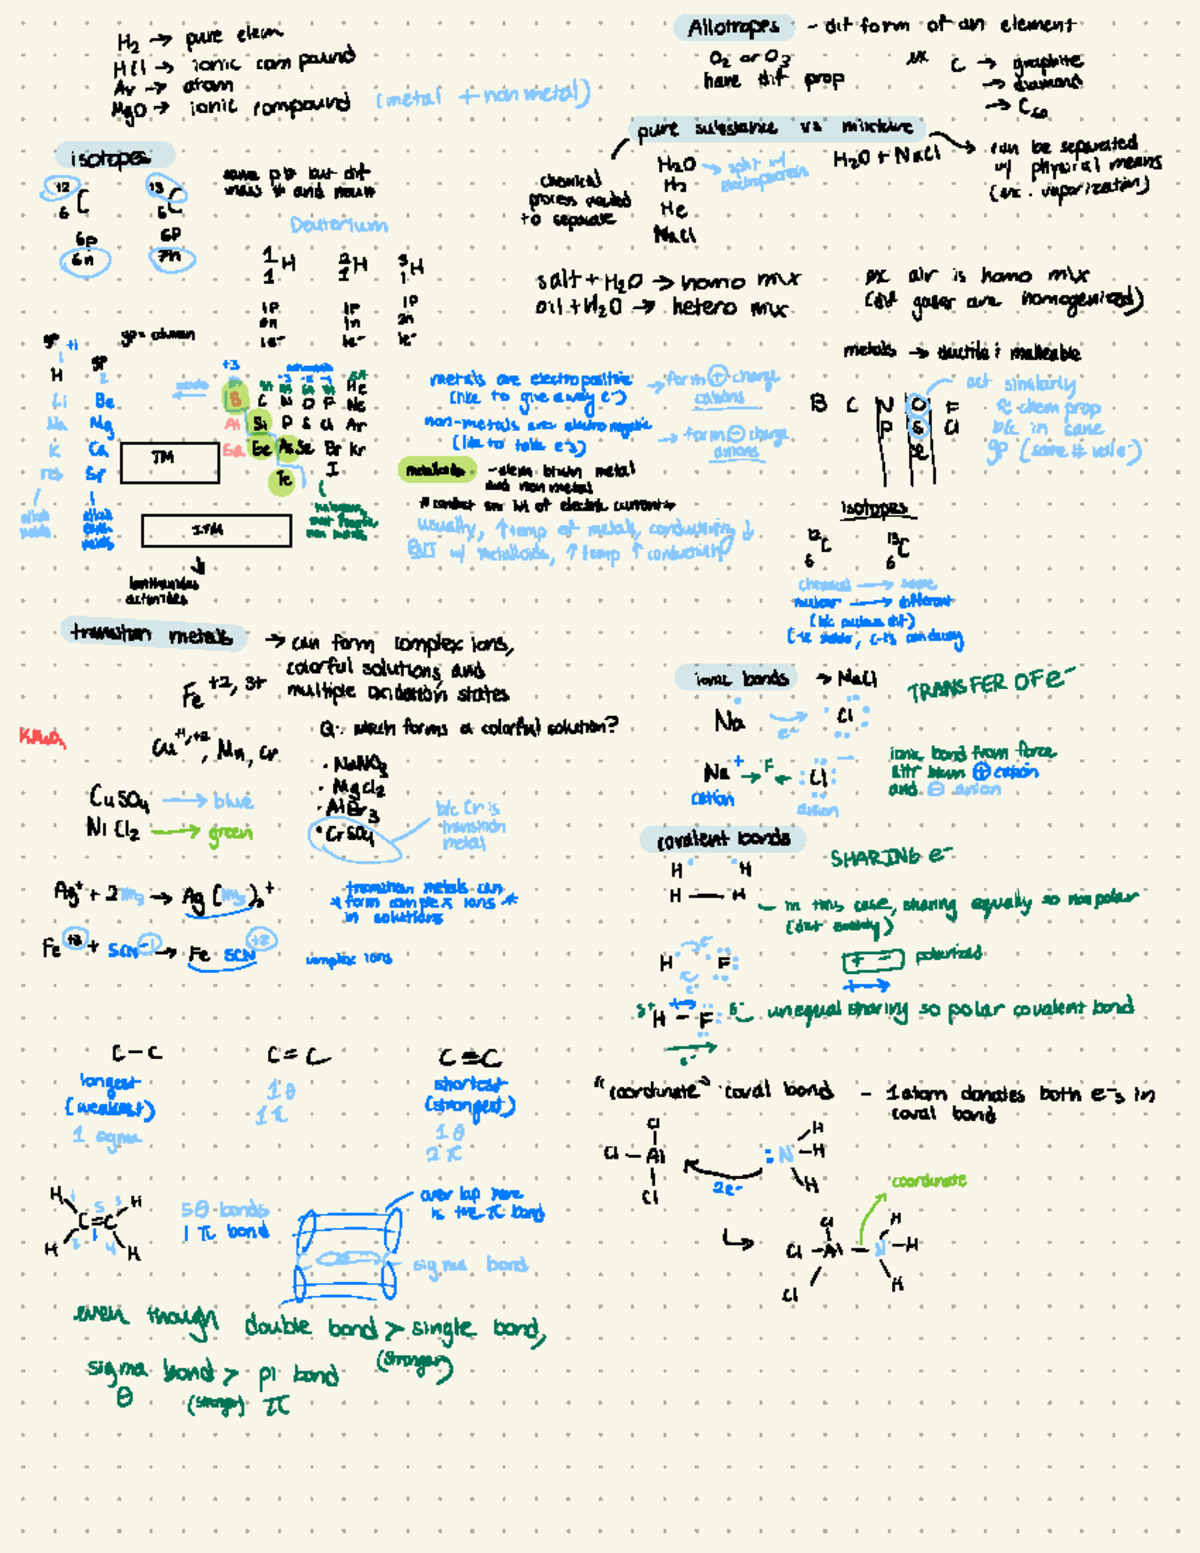 H2 → pure elem
HCl → ionic compound
Ar → atom
MgO → ionic compound (metal + nonmetal)
isotopes
12 6 C
13 6 C
same p# but dif
mass # and neutr
6p
6n
6p
7n
Deuterium
1 1 H
2 1 H
3 1 H
1p
0n
1e-
1p
1n
1e-
1p
2n
1e-
gp +1
gp = column
gp
1
2
H
Li Be
Na Mg
K Ca
Sr
TM
ITM
lanthanides
actinides
alkali
metals
alkali
earth
metals
metals
+3
-3 -2 -1
8A
He
B C N O F Ne
Al Si P S Cl Ar
Ga Ge As Se Br Kr
Te I
non metals
metals are electropositive
(like to give away e-)
→ form ⊕ charge
cations
non-metals are electronegative
(like to take e-s)
→ form ⊖ charge
anions
metalloids - elem btwn metal
and non metal
* conduct sm lvl of electric current *
usually, ↑ temp of metals, conductivity ↓
BUT w/ metalloids, ↑ temp ↑ conductivity
Allotropes - dif form of an element
O2 or O3
have dif prop
ex C → graphite
→ diamond
→ C60
pure substance vs mixture
chemical
process needed
to separate
H2O → split w/
H2
He
NaCl
H2O + NaCl
can be separated
w/ physical means
(ex. vaporization)
salt + H2O → homo mix
oil + H2O → hetero mix
ex air is homo mix
(dif gases are homogenized)
metals → ductile & malleable
B C N O F
P S Cl
Se
act similarly
≈ chem prop
b/c in same
gp (same # val e-)
isotopes
12 6 C
13 6 C
chemical → same
nuclear → different
(b/c nucleus dif)
transition metals → can form complex ions,
colorful solutions, and
multiple oxidation states
Fe +2, 3+
KMnO4
Cu +1, +2, Mn, Cr
CuSO4 → blue
NiCl2 → green
Q: which forms a colorful solution?
• NaNO3
• MgCl2
• AlBr3
• CrSO4
b/c Cr is
transition
metal
Ag+ + 2NH3 → Ag(NH3)2+
Fe+3 + SCN-1 → Fe SCN+2
transition metals can
* form complex ions *
in solutions
complex ions
ionic bonds → NaCl TRANSFER OF e-
Na e- Cl
Na + → F ← Cl -
cation anion
ionic bond from force
attr btwn ⊕ cation
and ⊖ anion
covalent bonds
SHARING e-
H H
H — H
in this case, sharing equally so nonpolar
(dist evenly)
H e- F
e-
+ - polarized
δ+ H - F δ- unequal sharing so polar covalent bond
e-
C - C
longest
(weakest)
1 sigma
C = C
1 θ
1 π
C ≡ C
shortest
(strongest)
1 θ
2 π
H H
C = C
H H
1 2 3 4 5
5 θ bonds
1 π bond
over lap here
is the π bond
sigma bond
even though double bond > single bond,
(stronger)
sigma bond > pi bond
θ (stronger) π
"coordinate" coval bond - 1 atom donates both e-s in
coval bond
Cl
Cl - Al
Cl
2e-
:N - H
H
H
coordinate
Cl
Cl - Al - N - H
Cl
H
H